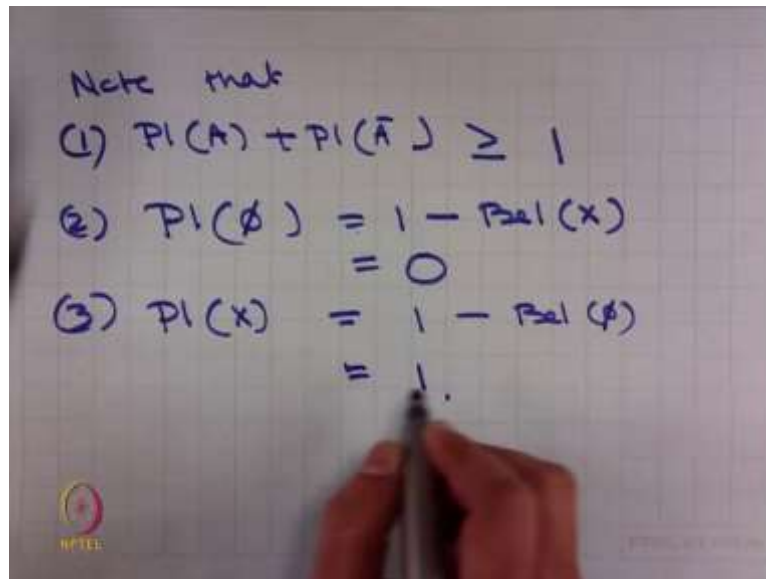 Note that
(1) Pl(A) + Pl(Ā) ≥ 1
(2) Pl(ϕ) = 1 - Bel(X)
= 0
(3) Pl(X) = 1 - Bel(ϕ)
= 1.
NPTEL